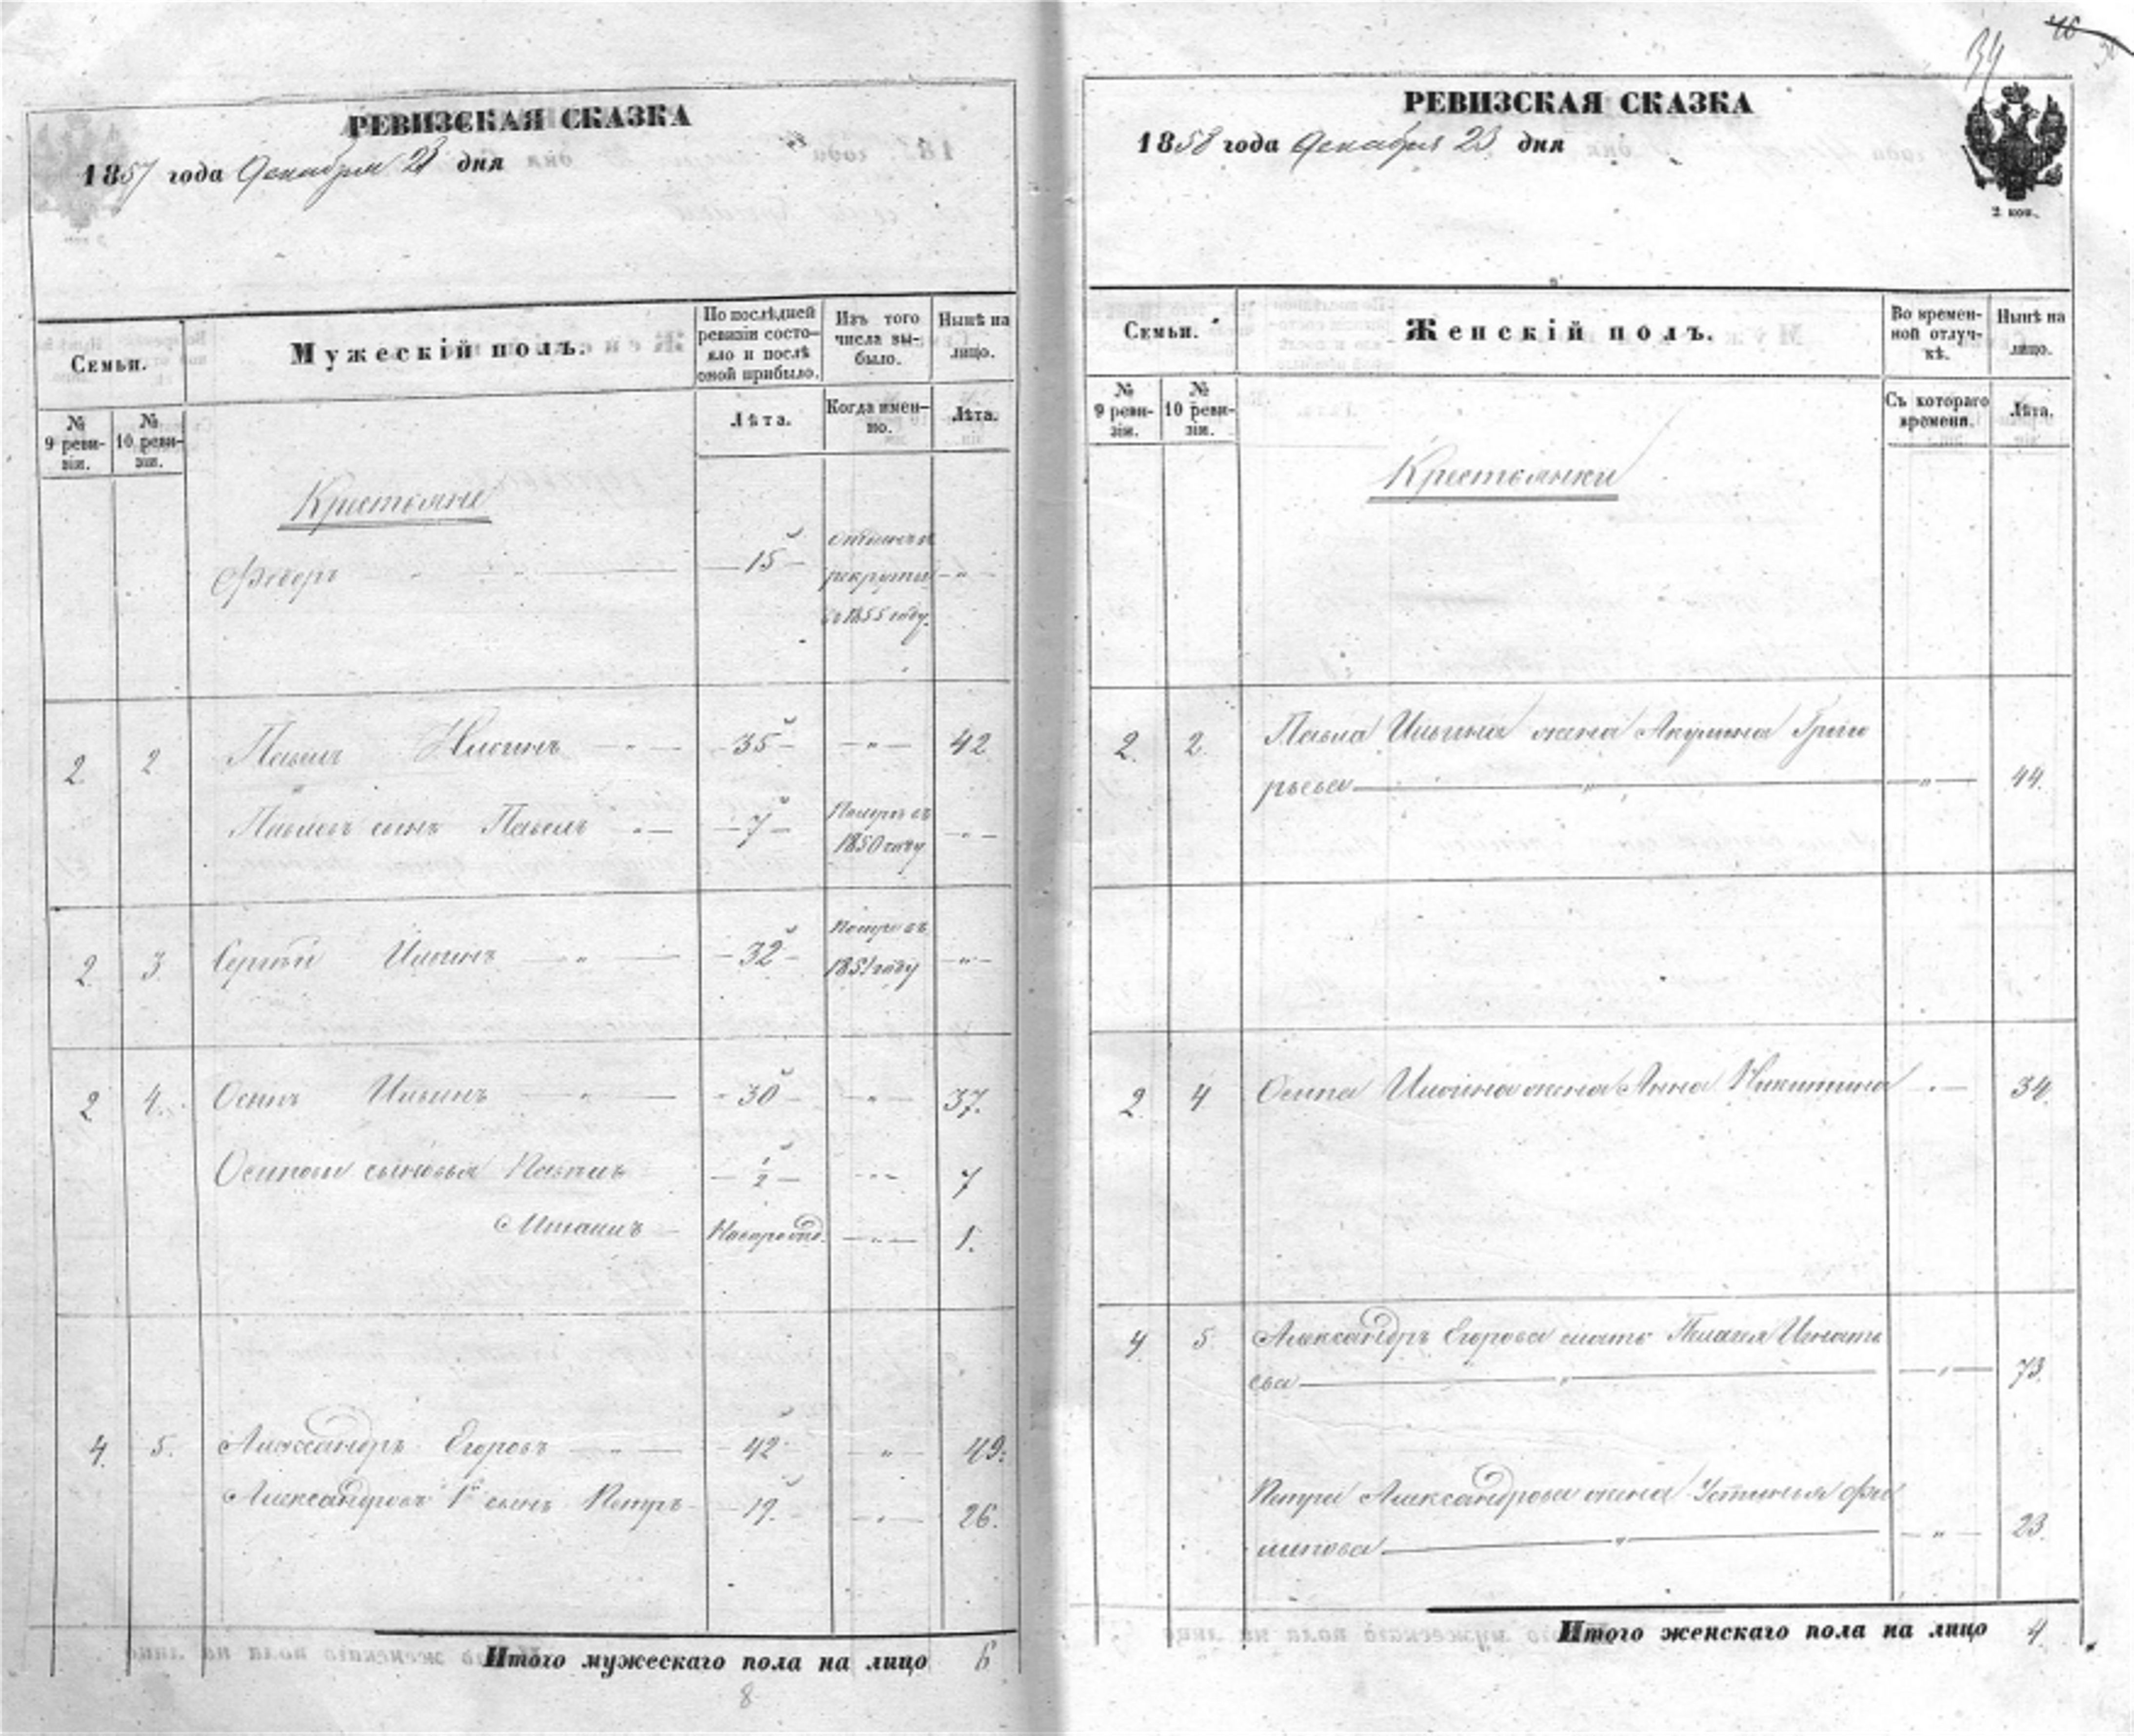 РЕВИЗСКАЯ СКАЗКА
1857 года Декабря 23 дня
Семьи.
Мужескій полъ.
По послѣдней ревизіи состояло и послѣ оной прибыло.
Изъ того числа выбыло.
Нынѣ на лицо.
№ 9 реви-зіи.
№ 10 реви-зіи.
Лѣта.
Когда имен-но.
Лѣта.
Крестьяне
Ѳедоръ 15 рекруты 1855 году
2 2 Павелъ Ильинъ 35 42
Павловъ сынъ Павелъ 7 Померъ въ 1850 году
2 3 Сергѣй Ильинъ 32 Померъ въ 1851 году
2 4. Осипъ Ильинъ 30 37.
Осиповы сыновья 1/2 7
Новорожд. 1.
4. 5. Александръ Егоровъ 42 49.
Александровъ 1й сынъ Петръ 19. 26.
Итого мужескаго пола на лицо 6
8
34
46
РЕВИЗСКАЯ СКАЗКА
1858 года Декабря 23 дня
2 коп.
Семьи.
Женскій полъ.
Во времен-ной отлуч-кѣ.
Нынѣ на лицо.
№ 9 реви-зіи.
№ 10 реви-зіи.
Съ котораго времени.
Лѣта.
Крестьянки
2. 2. Павла Ильина жена Акулина Григо
рьева 44.
2. 4 Осипа Ильина жена Анна Никитина 34.
4 5 Александръ Егорова мать Пелагея Игнать
ева 73.
Петра Александрова жена Устинья Фи
липова 23.
Итого женскаго пола на лицо 4